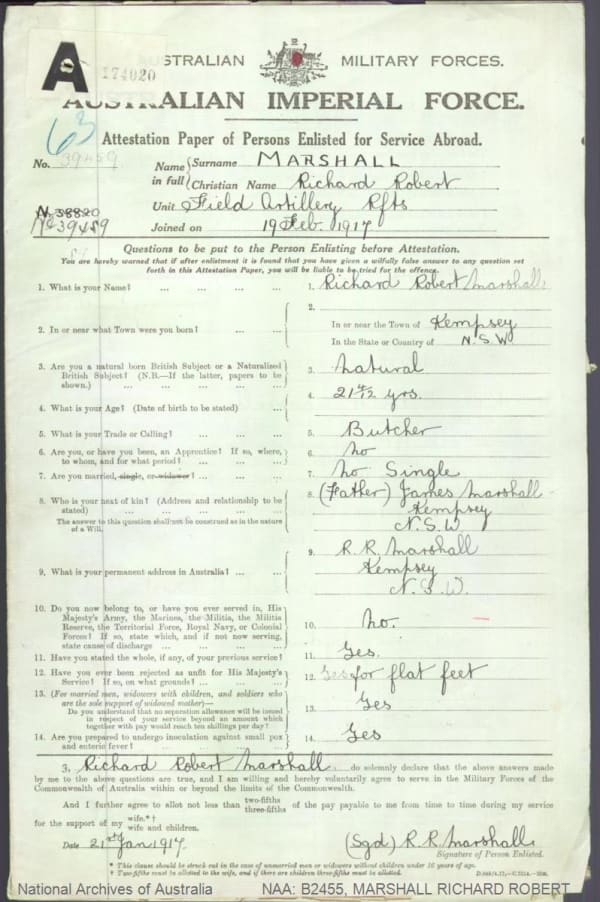 A
174020
AUSTRALIAN MILITARY FORCES.
AUSTRALIAN IMPERIAL FORCE.
63
Attestation Paper of Persons Enlisted for Service Abroad.
No. 39459
Name in full { Surname MARSHALL
Christian Name Richard Robert
Unit Field Artillery Rfts
Joined on 19 Feb. 1917
N 38820
No 39459
Questions to be put to the Person Enlisting before Attestation.
You are hereby warned that if after enlistment it is found that you have given a wilfully false answer to any question set
forth in this Attestation Paper, you will be liable to be tried for the offence.
1. What is your Name? ... ... ... ... 1. Richard Robert Marshall
2. In or near what Town were you born? ... ... 2. In or near the Town of Kempsey
In the State or Country of N.S.W
3. Are you a natural born British Subject or a Naturalised
British Subject? (N.B.—If the latter, papers to be
shown.) ... ... ... ... ... 3. Natural
4. What is your Age? (Date of birth to be stated) ... 4. 21 4/12 yrs.
5. What is your Trade or Calling? ... ... ... 5. Butcher
6. Are you, or have you been, an Apprentice? If so, where,
to whom, and for what period? ... ... ... 6. No
7. Are you married, single, or widower? ... ... ... 7. No Single
8. Who is your next of kin? (Address and relationship to be
stated) ... ... ... ... 8. (Father) James Marshall
Kempsey
N.S.W
The answer to this question shall not be construed as in the nature
of a Will.
9. What is your permanent address in Australia? ... ... 9. R.R. Marshall
Kempsey
N.S.W.
10. Do you now belong to, or have you ever served in, His
Majesty's Army, the Marines, the Militia, the Militia
Reserve, the Territorial Force, Royal Navy, or Colonial
Forces? If so, state which, and if not now serving,
state cause of discharge ... ... ... ... 10. No.
11. Have you stated the whole, if any, of your previous service? 11. Yes.
12. Have you ever been rejected as unfit for His Majesty's
Service? If so, on what grounds? ... ... ... 12. Yes for flat feet
13. (For married men, widowers with children, and soldiers who
are the sole support of widowed mother)—
Do you understand that no separation allowance will be issued
in respect of your service beyond an amount which
together with pay would reach ten shillings per day? 13. Yes
14. Are you prepared to undergo inoculation against small pox
and enteric fever? ... ... ... ... 14. Yes
I, Richard Robert Marshall do solemnly declare that the above answers made
by me to the above questions are true, and I am willing and hereby voluntarily agree to serve in the Military Forces of the
Commonwealth of Australia within or beyond the limits of the Commonwealth.
And I further agree to allot not less than two-fifths three-fifths of the pay payable to me from time to time during my service
for the support of my wife.*† wife and children.
Date 21st Jan 1917. (Sgd) R.R. Marshall
Signature of Person Enlisted.
* This clause should be struck out in the case of unmarried men or widowers without children under 16 years of age.
† Two-fifths must be allotted to the wife, and if there are children three-fifths must be allotted.
National Archives of Australia NAA: B2455, MARSHALL RICHARD ROBERT